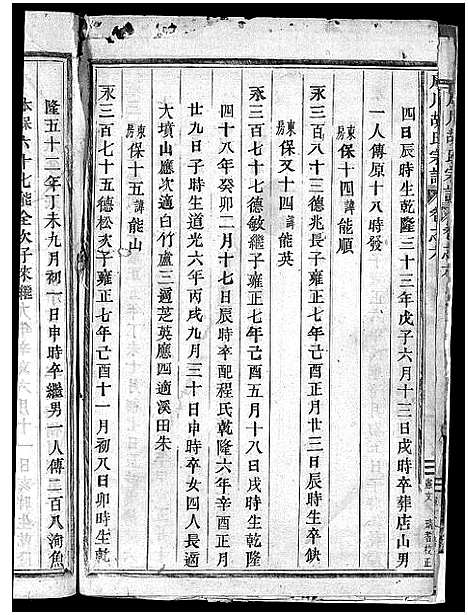 胡氏宗譜
四日辰時生乾隆三十三年戊子六月十三日戌時卒葬店山男
一人傳原十八時發
東房保十四諱能順
永三百八十三德兆長子雍正七年己酉正月廿三日辰時生卒缺
東房保又十四諱能英
永三百七十七德敏繼子雍正七年己酉五月十八日戌時生乾隆
四十八年癸卯二月十七日卯時卒配程氏乾隆六年辛酉正月
廿九日子時生道光六年丙戌九月三十日申時卒女四人長適
大墳山應次適白竹盧三適芝英應四適溪田朱
東房保十五諱能山
永三百七十五德松次子雍正七年己酉十一月初八日卯時生乾
隆五十二年丁未九月初十日申時卒繼男一人傳二百八洵魚
本保六十七能全次子來繼